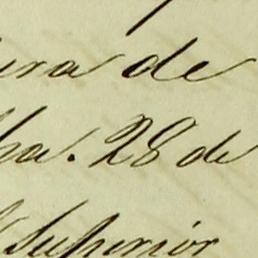 ura de
ha. 28 de
Superior